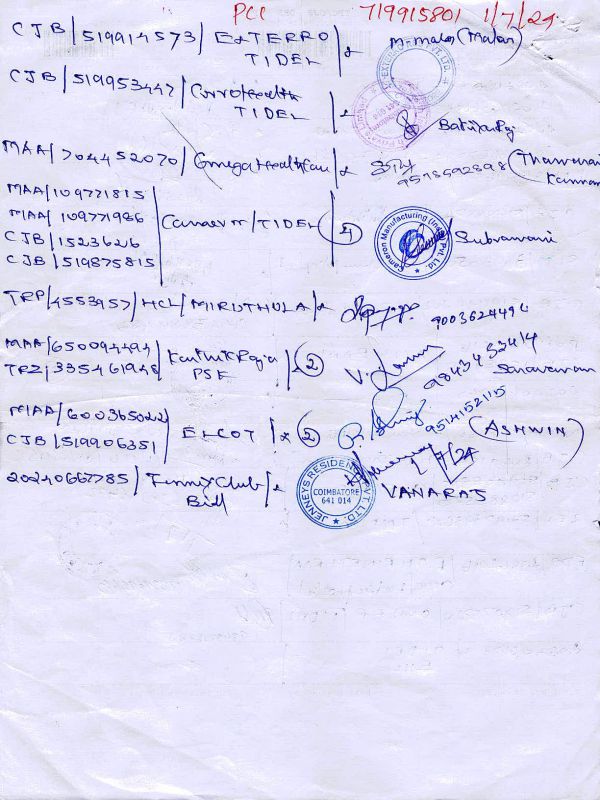 PCI 719915801 1/7/24
CJB/519914573/EXTERRO M.Malar (Malar)
TIDEL
CJB/519953447/
TIDEL
MAA/704452070/OmegaHealthCare 9578592898
MAA/109771815
MAA/109771986 /TIDEL Subramani
CJB/1523626
CJB/519875815
Cameron Manufacturing (India) Pvt. Ltd.
TRP/4553957/HCL/MIRUTHULA 9003624494
MAA/650094494 2 V. 9843433414
TRZ/335461948 PSE Saravanan
MAA/600365022 9514152115
CJB/519906351 ELCOT x 2 (ASHWIN)
20240667785/ Club 1/7/24
Bill VANARAJ
JENNEYS RESIDENCY PVT LTD.
COIMBATORE
641 014